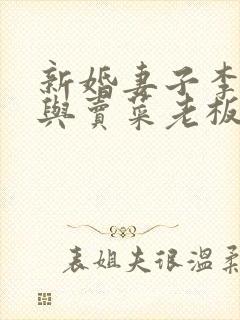 新婚妻子李
與賣菜老板
表姐夫很溫柔